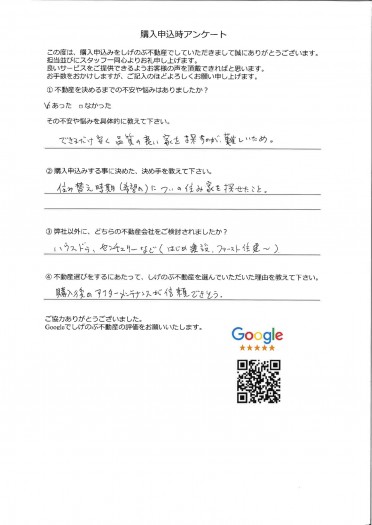 購入申込時アンケート
この度は、購入申込みをしげのぶ不動産でしていただきまして誠にありがとうございます。
担当並びにスタッフ一同心よりお礼申し上げます。
良いサービスをご提供できるようお客様の声を頂戴できればと思います。
お手数をおかけしますが、ご記入のほどよろしくお願い申し上げます。
① 不動産を決めるまでの不安や悩みはありましたか？
☑あった □なかった
その不安や悩みを具体的に教えて下さい。
できるだけ安く品質の良い家を探すのが難しいため。
② 購入申込みする事に決めた、決め手を教えて下さい。
住み替え時期(希望の)についの住み家を探せたこと。
③ 弊社以外に、どちらの不動産会社をご検討されましたか？
ハウスドゥ、センチュリーなど(はじめ建設、ファースト住建～)
④ 不動産選びをするにあたって、しげのぶ不動産を選んでいただいた理由を教えて下さい。
購入後のアフターメンテナンスが信頼できそう。
ご協力ありがとうございました。
Googleでしげのぶ不動産の評価をお願いいたします。
Google
★★★★★